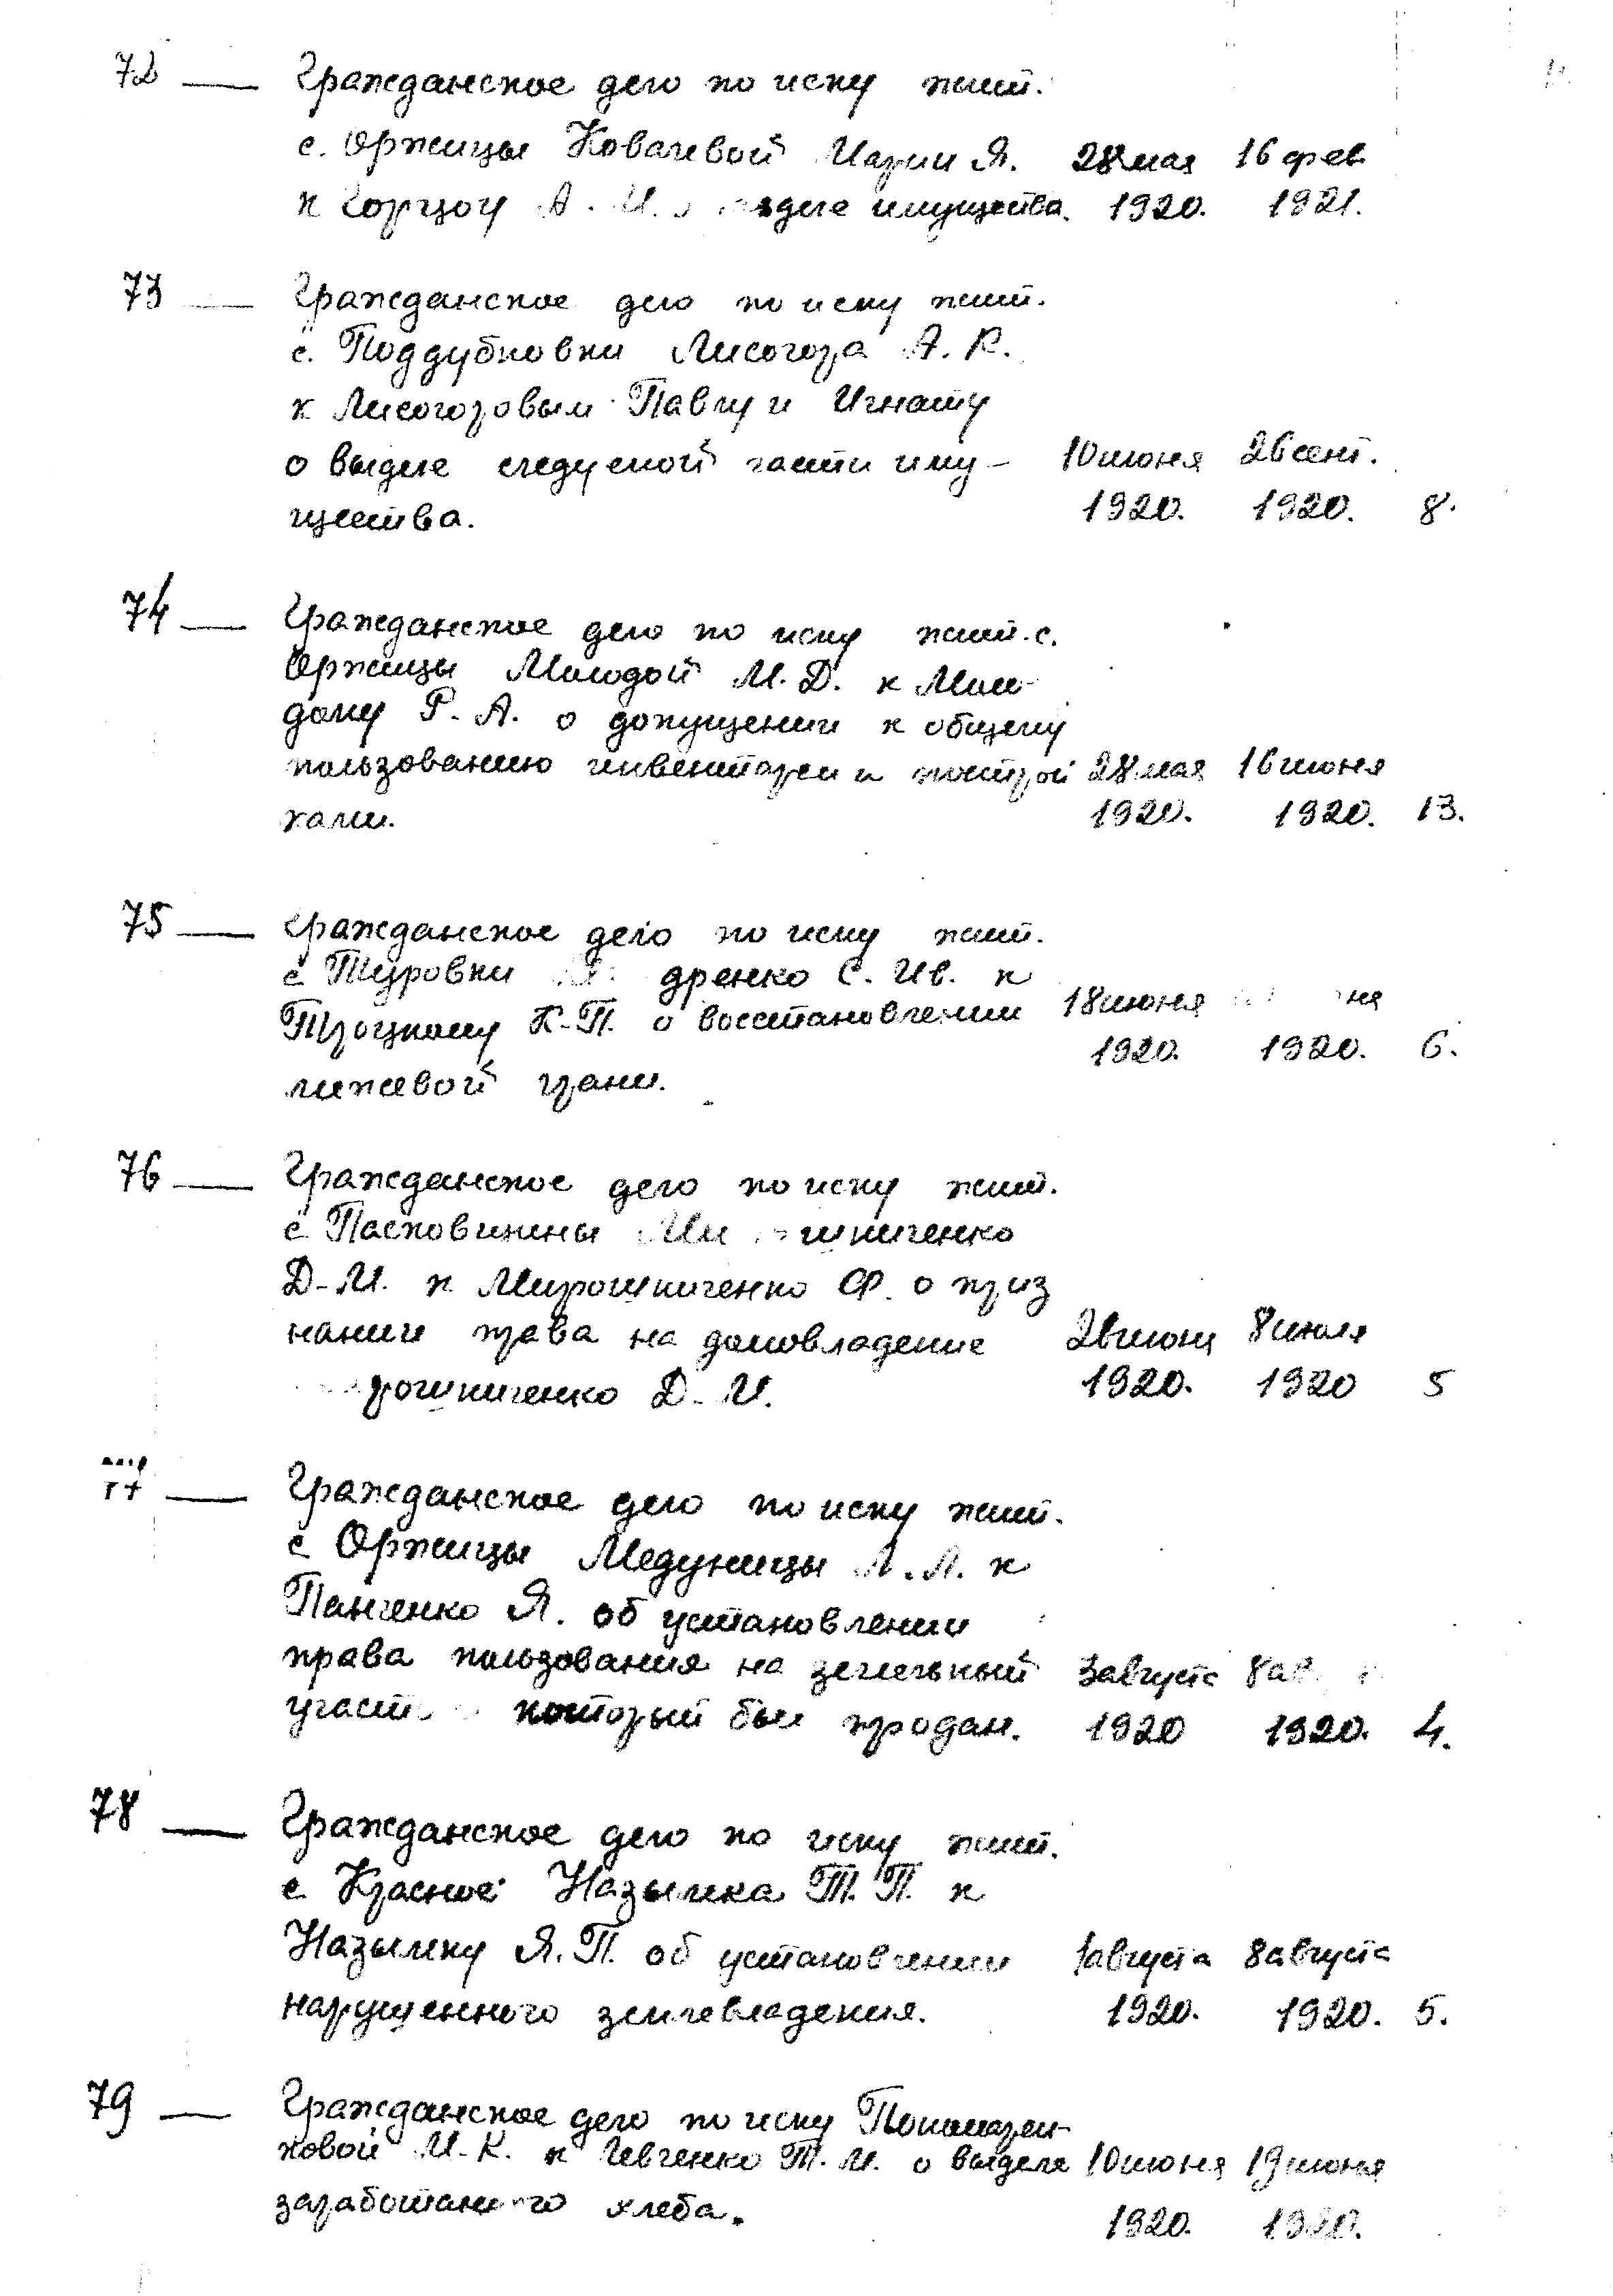 72 — Гражданское дело по иску жит.
с. Оржицы Ковалевой Марии Я. 28 мая 16 фев
к Горцоу А. И. о разделе имущества. 1920. 1921.
73 — Гражданское дело по иску жит.
с. Поддубновки Лисогора А. К.
к Лисогоровым Павлу и Игнату
о выделе следуемой части иму- 10 июня 26 сент.
щества. 1920. 1920. 8.
74 — Гражданское дело по иску жит. с.
Оржицы Молодой М. Д. к Моло-
дому Р. А. о допущении к общему
пользованию инвентарем и построй 28 мая 16 июня
ками. 1920. 1920. 13.
75 — Гражданское дело по иску жит.
с Туровки дренко С. Ив. к
Троцкому К. П. о восстановлении 18 июня ня
межевой грани. 1920. 1920. 6.
76 — Гражданское дело по иску жит.
с Пасковщины Ми шниченко
Д. И. к Мирошниченко Ф. о приз
нании права на домовладение 26 июня 8 июля
рошниченко Д. И. 1920. 1920 5
77 — Гражданское дело по иску жит.
с Оржицы Медуницы А. Л. к
Панченко Я. об установлении
права пользования на земельный 3 августа 8 ав
участ который был продан. 1920 1920. 4.
78 — Гражданское дело по иску жит.
с Красное Назымка Т. П. к
Назымку Я. П. об установлении 1 августа 8 августа
нарушенного землевладения. 1920. 1920. 5.
79 — Гражданское дело по иску Пономарен-
ковой М. К. к Шевченко Т. И. о выделе 10 июня 19 июня
заработанного хлеба. 1920. 1920.